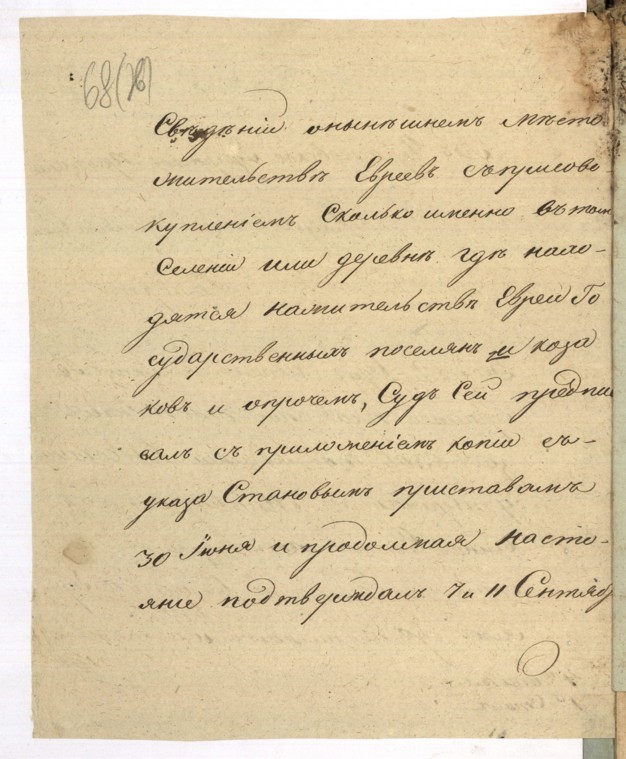 68(76)
Свѣдѣніи о нынѣшнемъ мѣсто
жительствѣ Евреевъ съ присово-
купленіемъ сколько именно въ томъ
селеніи или деревнѣ гдѣ нахо-
дятся на жительствѣ Евреи Го
сударственныхъ поселянъ и коза
ковъ и о прочемъ, Судъ Сей предпи
валъ съ приложеніемъ копіи съ-
указа Становымъ приставамъ
30 Іюня и продолжая насто-
яніе подтверждалъ 7 и 11 Сентяб